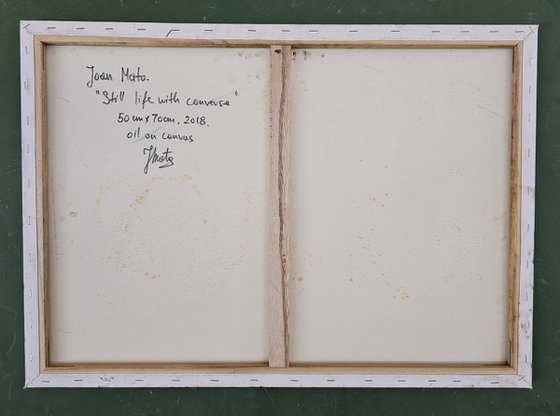 Joan Mato.
"Still life with converse"
50cm x 70cm. 2018.
oil on canvas
JMato